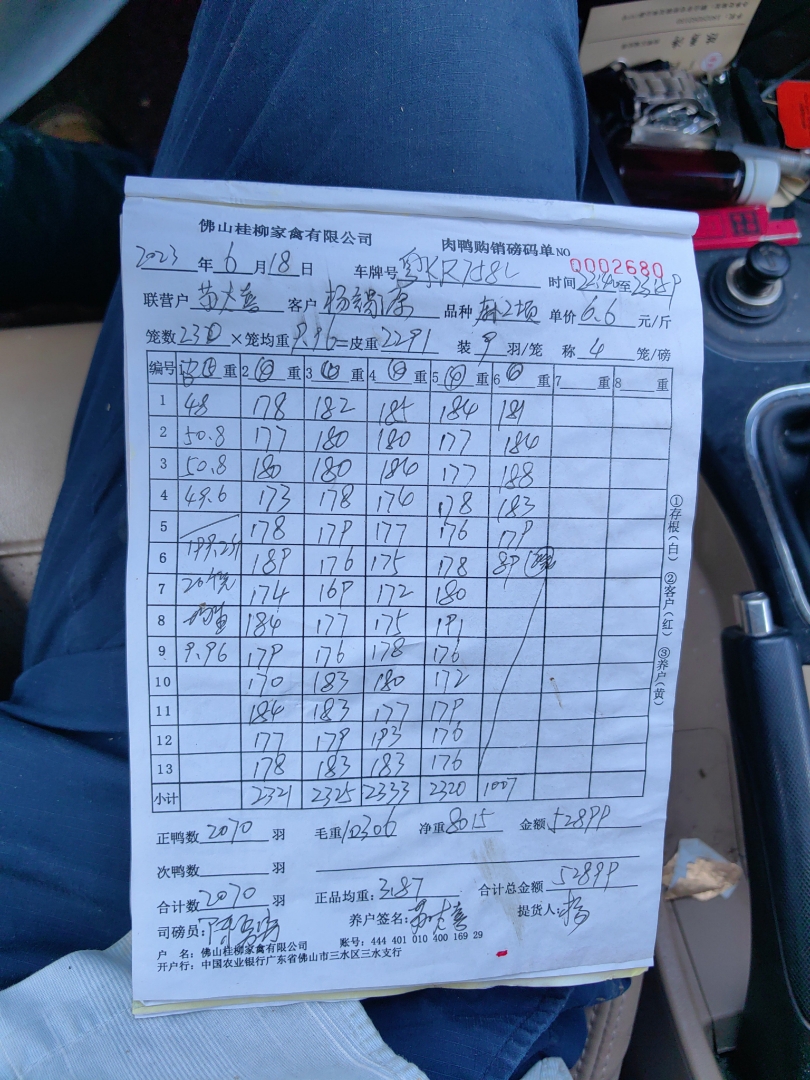 佛山桂柳家禽有限公司 肉鸭购销磅码单 NO 0002680
2023 年 6 月 18 日 车牌号 粤 时间 至
联营户 客户 杨 品种 单价 6.6 元/斤
笼数 230 ×笼均重 9.96 =皮重 2291 装 9 羽/笼 称 4 笼/磅
编号 重 2 重 3 重 4 重 5 重 6 重 7 重 8 重
1 48 178 182 185 184 181
2 50.8 177 180 180 177 184
3 50.8 180 180 184 177 188
4 49.6 173 178 174 178 183
5 178 179 177 176 179
6 199.2 189 176 175 178 89
7 20 174 169 172 180
8 184 177 175 191
9 9.96 179 176 178 176
10 170 183 180 172
11 184 183 177 179
12 177 179 193 176
13 178 183 183 176
小计 2321 2325 2333 2320 1007
①存根(白) ②客户(红) ③养户(黄)
正鸭数 2070 羽 毛重 10306 净重 8015 金额 52899
次鸭数 羽
合计数 2070 羽 正品均重: 3.87 合计总金额 52899
司磅员: 养户签名: 提货人: 杨
户 名: 佛山桂柳家禽有限公司 账号: 444 401 010 400 169 29
开户行: 中国农业银行广东省佛山市三水区三水支行